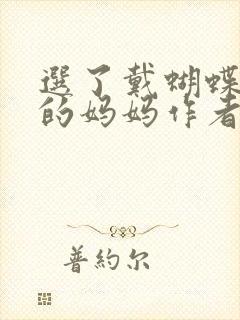 選了戴蝴蝶
的妈妈作者
普約尔